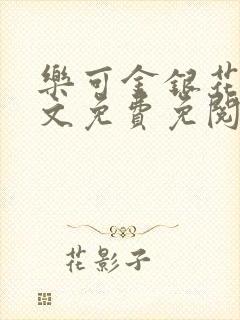 樂可金銀花
文免費免閱
花影子